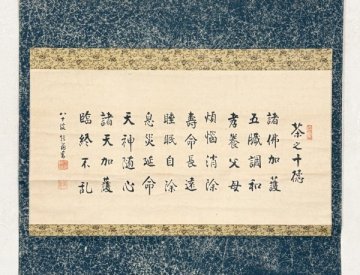 茶之十徳
諸佛加護
五臓調和
孝養父母
煩惱消除
壽命長遠
睡眠自除
息災延命
天神随心
諸天加護
臨終不乱